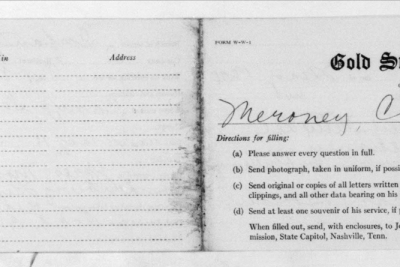 in Address
FORM W-W-1
Gold S
Meroney, C
Directions for filling:
(a) Please answer every question in full.
(b) Send photograph, taken in uniform, if possi
(c) Send original or copies of all letters written
clippings, and all other data bearing on his
(d) Send at least one souvenir of his service, if
When filled out, send, with enclosures, to J
mission, State Capitol, Nashville, Tenn.